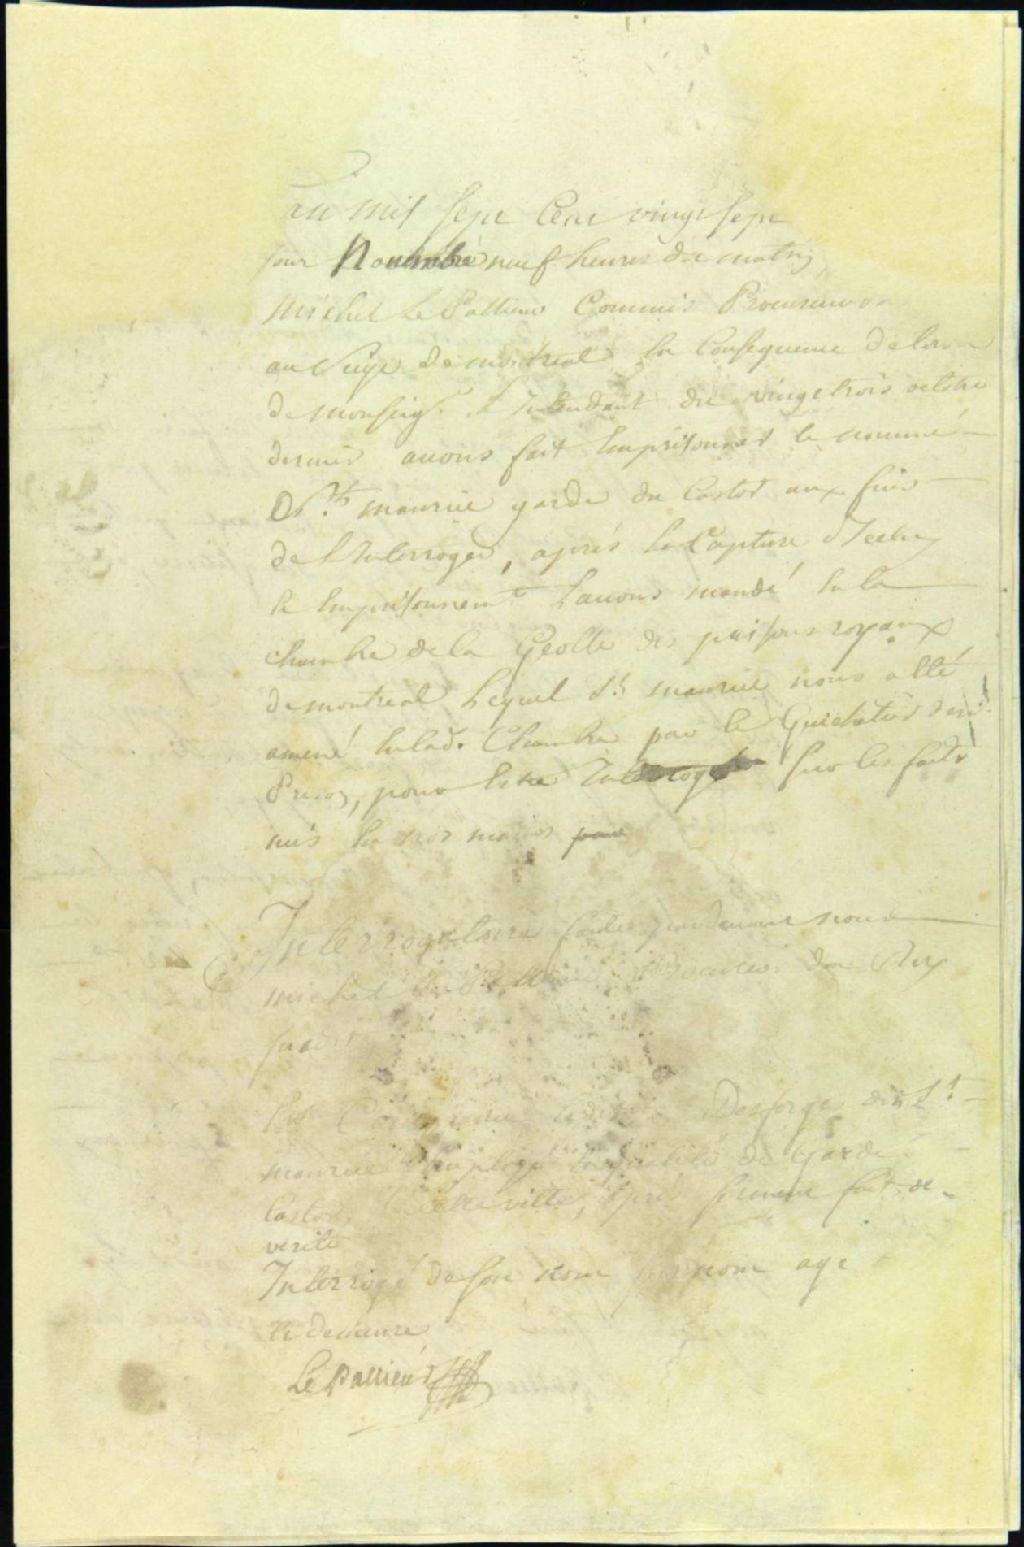 mil sept Cent vingt sept
jour Nouembre neuf heures du matin
Michel Le Pallieur Commis Procureur
au Siege de montreal En Consequence de
de monseigr L Intendant du vingt trois octobre
dernier auons fait Emprisonner le nommé
St maurice garde du Castor aux fins
de L'Interroger, aprés la Capture d'Iceluy
le Emprisonnemt Lauons mandé En la
chambre de la Geolle des prisons royaux
de montreal Lequel St maurice nous a Eté
amené En lad. Chambre par le Guichetier des
Prison, pour Estre Interrogé Sur les faits
mis En nos mains par
Interrogatoire faite pardeuant nous
michel Le Pallieur Procureur du Roy
Desforges dit St
maurice Employé En qualité de Garde
Castor En cette ville, aprés serment fait de
verité
Interrogé de son nom surnom age
et demeure
Le Pallieur